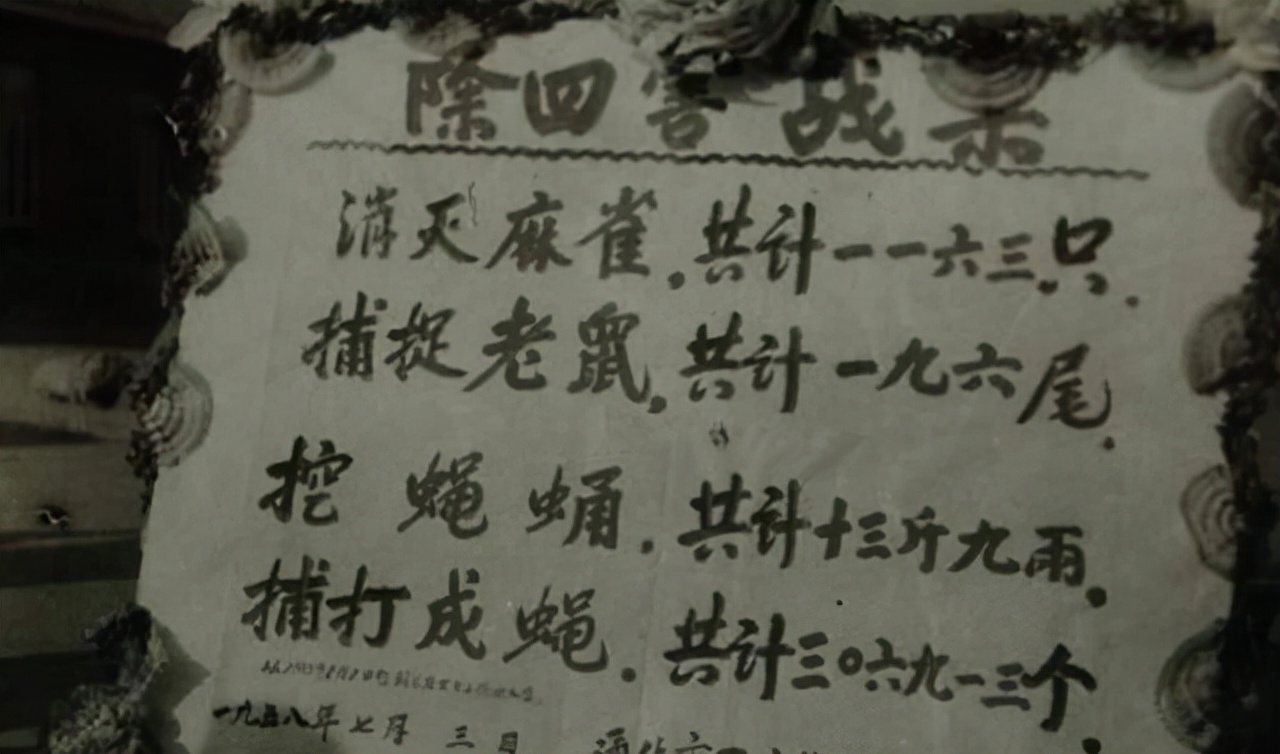 除四害 战果
消灭麻雀.共计一一六三只.
捕捉老鼠.共计一九六尾.
挖蝇蛹.共计十三斤九雨.
捕打成蝇.共计三〇六九一三个.
一九五八年七月三日